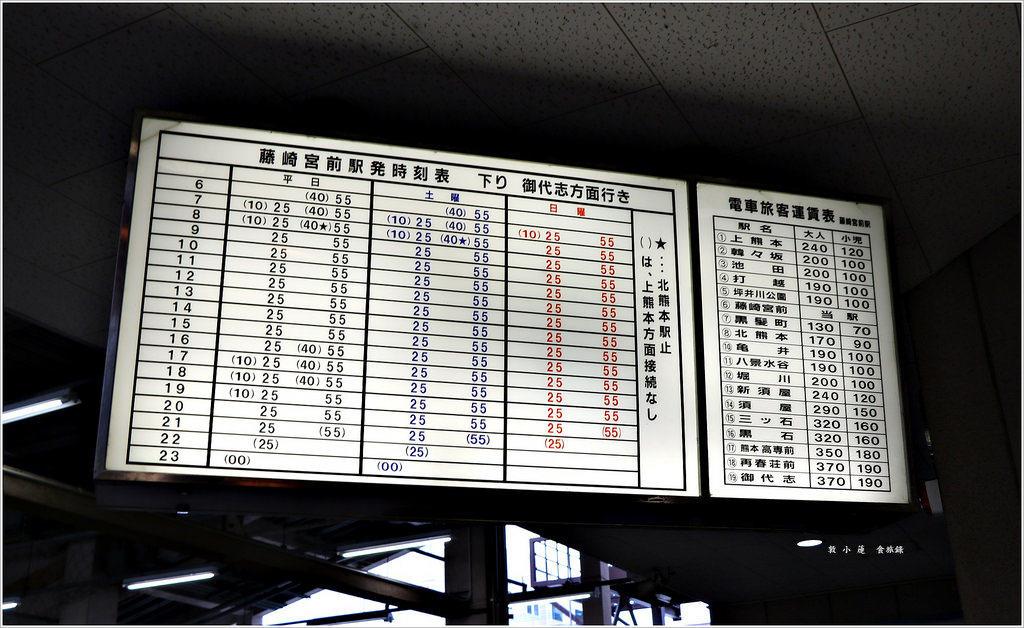 藤崎宮前駅発時刻表 下り 御代志方面行き
平日 土曜 日曜
6 (40) 55 (40) 55
7 (10) 25 (40) 55 (10) 25 (40) 55
8 (10) 25 (40★) 55 (10) 25 (40★) 55 (10) 25 55
9 25 55 25 55 25 55
10 25 55 25 55 25 55
11 25 55 25 55 25 55
12 25 55 25 55 25 55
13 25 55 25 55 25 55
14 25 55 25 55 25 55
15 25 55 25 55 25 55
16 25 (40) 55 25 55 25 55
17 (10) 25 (40) 55 25 55 25 55
18 (10) 25 (40) 55 25 55 25 55
19 (10) 25 55 25 55 25 55
20 25 55 25 55 25 55
21 25 (55) 25 (55) 25 (55)
22 (25) (25) (25)
23 (00) (00)
★…北熊本駅止
( )は、上熊本方面接続なし
電車旅客運賃表 藤崎宮前駅
駅名 大人 小児
①上熊本 240 120
②韓々坂 200 100
③池田 200 100
④打越 190 100
⑤坪井川公園 190 100
⑥藤崎宮前 当駅
⑦黒髪町 130 70
⑧北熊本 170 90
⑩亀井 190 100
⑪八景水谷 190 100
⑫堀川 200 100
⑬新須屋 240 120
⑭須屋 290 150
⑮三ッ石 320 160
⑯黒石 320 160
⑰熊本高専前 350 180
⑱再春荘前 370 190
⑲御代志 370 190
敦小蓮 食旅録